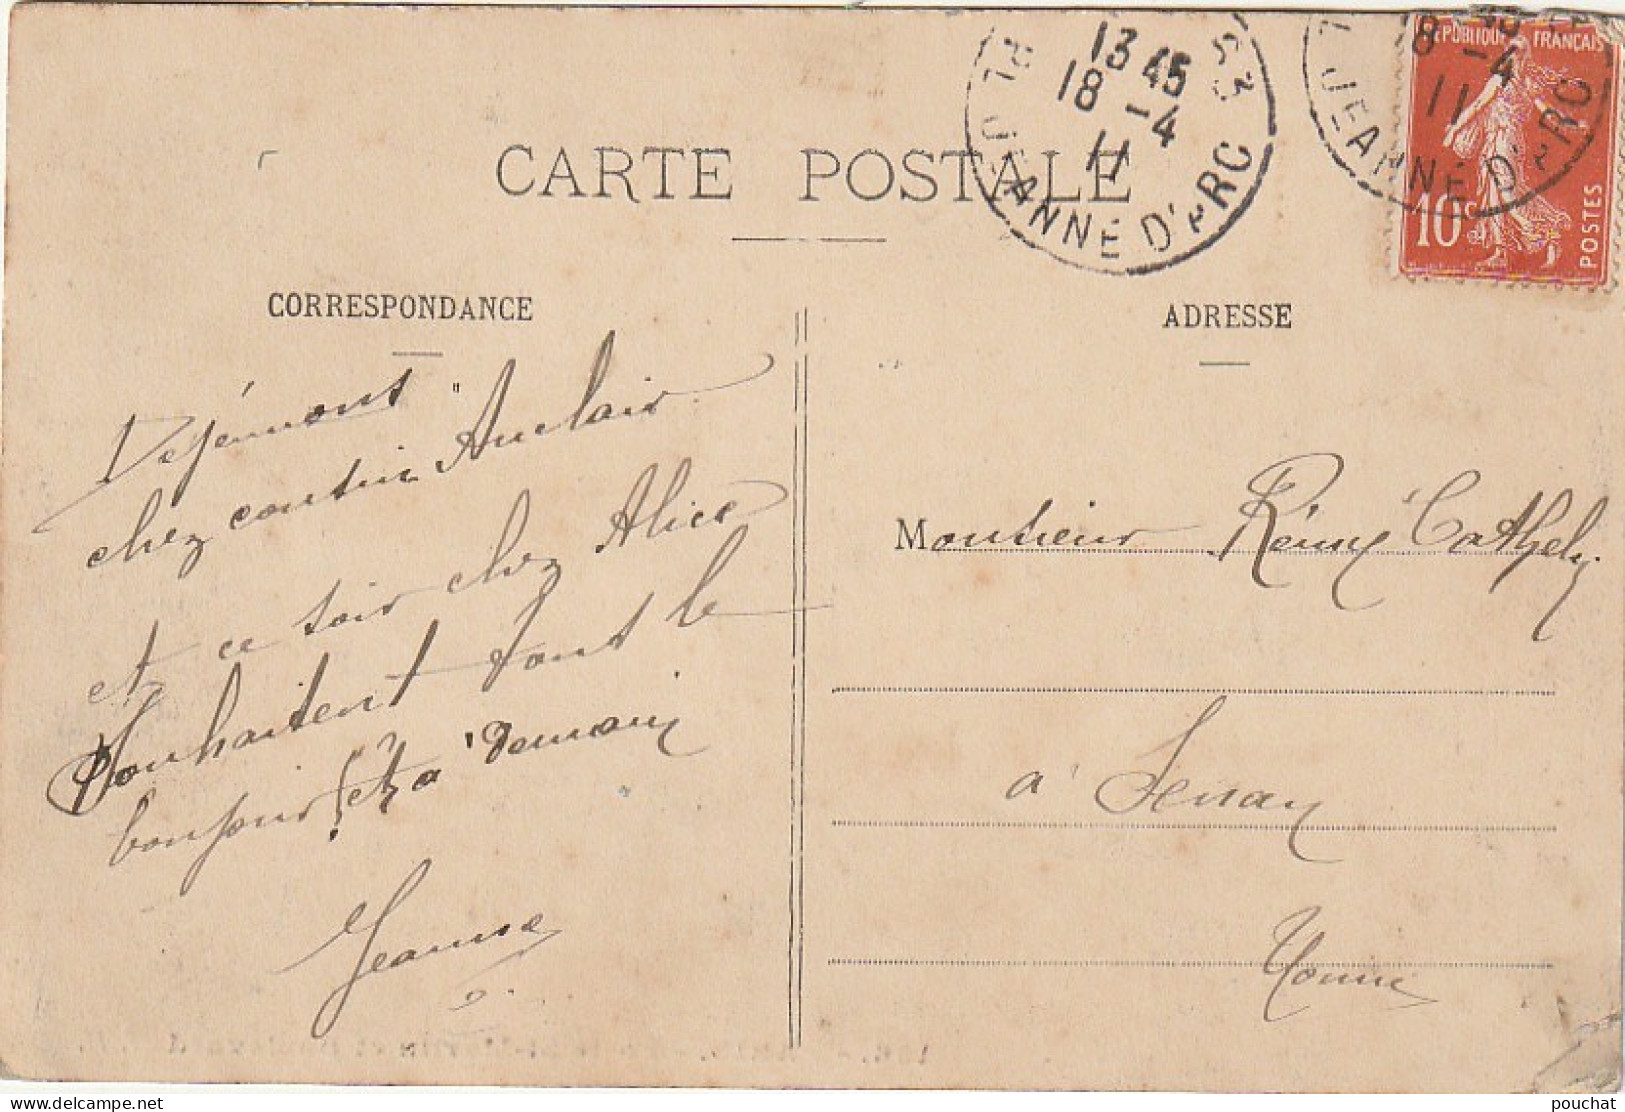 CARTE POSTALE
13 45
18 - 4
11
PL JEANNE D'ARC
18 - 4
11
JEANNE D'ARC
REPUBLIQUE FRANÇAISE
10c
POSTES
CORRESPONDANCE
Déjeunons
chez cousin Auclair
et ce soir chez Alice
souhaitent tous le
bonjour et à demain
Jeanne
ADRESSE
Monsieur Rémy Cathelin
à Senan
Yonne
pouchat